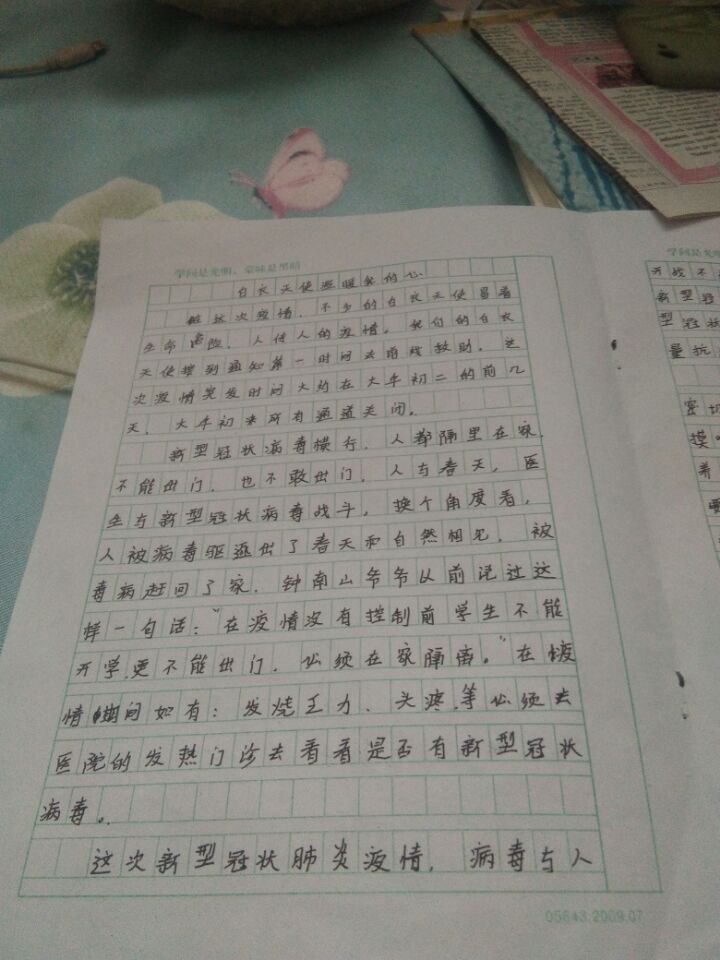 学问是光明，蒙昧是黑暗
白衣天使温暖我的心
这次疫情，不少的白衣天使冒着
生命危险，人传人的疫情。我们的白衣
天使接到通知第一时间去前线救助。这
次疫情突发时间大约在大年初二的前几
天，大年初来所有通道关闭。
新型冠状病毒横行，人都隔里在家，
不能出门，也不敢出门，人与春天，医
生与新型冠状病毒战斗，换个角度看，
人被病毒驱逐出了春天和自然相见，被
毒病赶回了家，钟南山爷爷从前说过这
样一句话："在疫情没有控制前学生不能
开学，更不能出门，必须在家隔离。"在疫
情期间如有：发烧王力、头疼，等必须去
医院的发热门诊去看看是否有新型冠状
病毒。
这次新型冠状肺炎疫情，病毒与人
05643.2009.07
学问是光
开战不
新型冠
型冠状
量抗
密切
摸
养
要